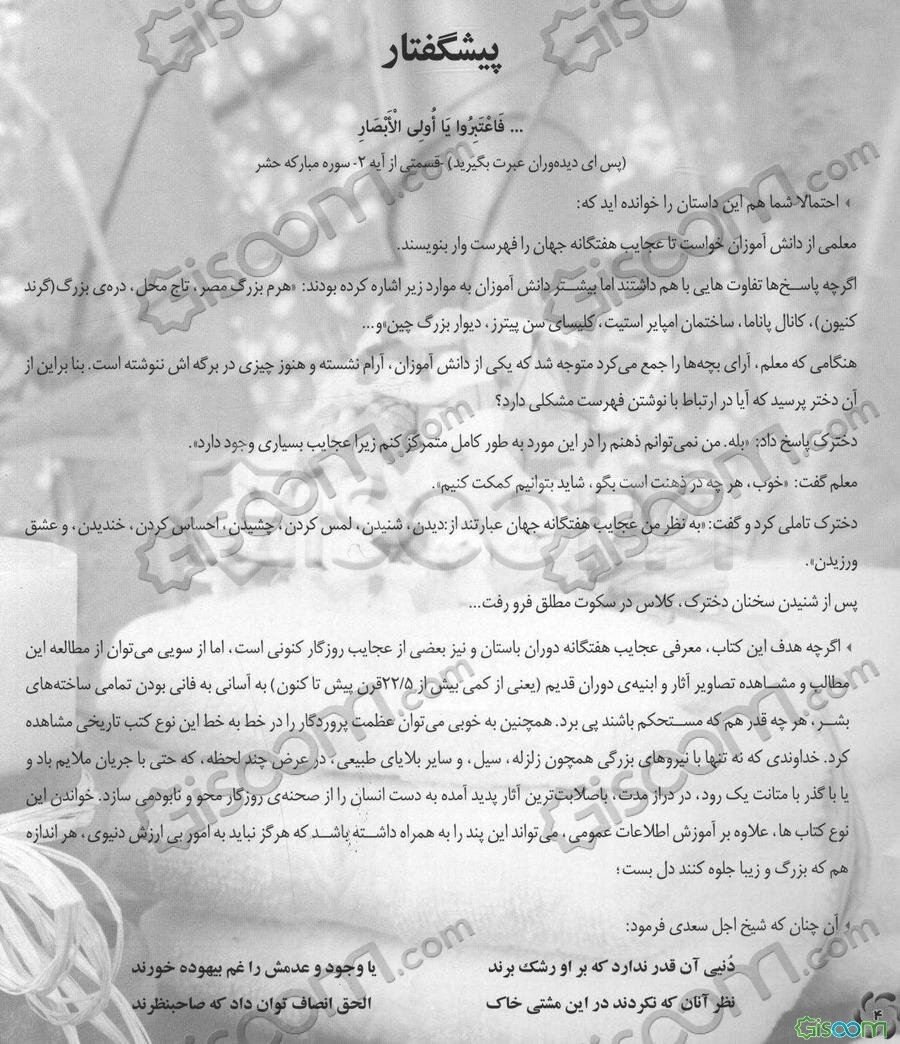 پیشگفتار
... فَاعْتَبِرُوا يَا أُولِی الْأَبْصَارِ
(پس ای دیده‌وران عبرت بگیرید) -قسمتی از آیه ۲- سوره مبارکه حشر
احتمالا شما هم این داستان را خوانده اید که:
معلمی از دانش آموزان خواست تا عجایب هفتگانه جهان را فهرست وار بنویسند.
اگرچه پاسخ‌ها تفاوت هایی با هم داشتند اما بیشتر دانش آموزان به موارد زیر اشاره کرده بودند: «هرم بزرگ مصر، تاج محل، دره‌ی بزرگ(گرند
کنیون)، کانال پاناما، ساختمان امپایر استیت، کلیسای سن پیترز، دیوار بزرگ چین»و...
هنگامی که معلم، آرای بچه‌ها را جمع می‌کرد متوجه شد که یکی از دانش آموزان، آرام نشسته و هنوز چیزی در برگه اش ننوشته است. بنا براین از
آن دختر پرسید که آیا در ارتباط با نوشتن فهرست مشکلی دارد؟
دخترک پاسخ داد: «بله. من نمی‌توانم ذهنم را در این مورد به طور کامل متمرکز کنم زیرا عجایب بسیاری وجود دارد».
معلم گفت: «خوب، هر چه در ذهنت است بگو، شاید بتوانیم کمکت کنیم».
دخترک تاملی کرد و گفت:«به نظر من عجایب هفتگانه جهان عبارتند از:دیدن، شنیدن، لمس کردن، چشیدن، احساس کردن، خندیدن، و عشق
ورزیدن».
پس از شنیدن سخنان دخترک، کلاس در سکوت مطلق فرو رفت...
اگرچه هدف این کتاب، معرفی عجایب هفتگانه دوران باستان و نیز بعضی از عجایب روزگار کنونی است، اما از سویی می‌توان از مطالعه این
مطالب و مشاهده تصاویر آثار و ابنیه‌ی دوران قدیم (یعنی از کمی بیش از ۲۲/۵قرن پیش تا کنون) به آسانی به فانی بودن تمامی ساخته‌های
بشر، هر چه قدر هم که مستحکم باشند پی برد. همچنین به خوبی می‌توان عظمت پروردگار را در خط به خط این نوع کتب تاریخی مشاهده
کرد. خداوندی که نه تنها با نیروهای بزرگی همچون زلزله، سیل، و سایر بلایای طبیعی، در عرض چند لحظه، که حتی با جریان ملایم باد و
یا با گذر با متانت یک رود، در دراز مدت، باصلابت‌ترین آثار پدید آمده به دست انسان را از صحنه‌ی روزگار محو و نابودمی سازد. خواندن این
نوع کتاب ها، علاوه بر آموزش اطلاعات عمومی، می‌تواند این پند را به همراه داشته باشد که هرگز نباید به امور بی ارزش دنیوی، هر اندازه
هم که بزرگ و زیبا جلوه کنند دل بست؛
آن چنان که شیخ اجل سعدی فرمود:
دُنیی آن قدر ندارد که بر او رشک برند یا وجود و عدمش را غم بیهوده خورند
نظر آنان که نکردند در این مشتی خاک الحق انصاف توان داد که صاحبنظرند
۴
Gisoom.com